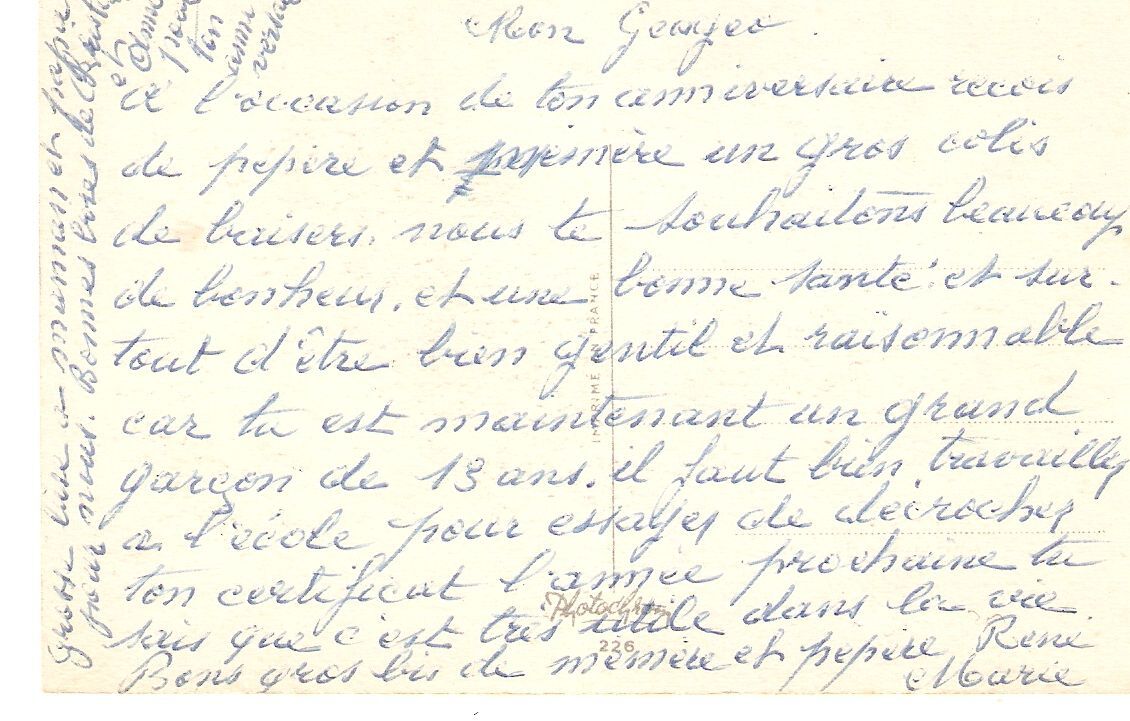 Mon Georges
à l'occasion de ton anniversaire recois
de pepère et memère un gros colis
de baisers. nous te souhaitons beaucoup
de bonheur. et une bonne santé. et sur-
tout d'être bien gentil et raisonnable
car tu est maintenant un grand
garçon de 13 ans. il faut bien travailler
a l'école pour essayer de décrocher
ton certificat l'année prochaine tu
sais que c'est très utile dans la vie
Bons gros bis de memère et pepère René
Marie
Grosse bise a maman et papa
pour nous. Bonnes bises de
pour
ton
anni
versai
IMPRIMÉ EN FRANCE
Photochrom
226